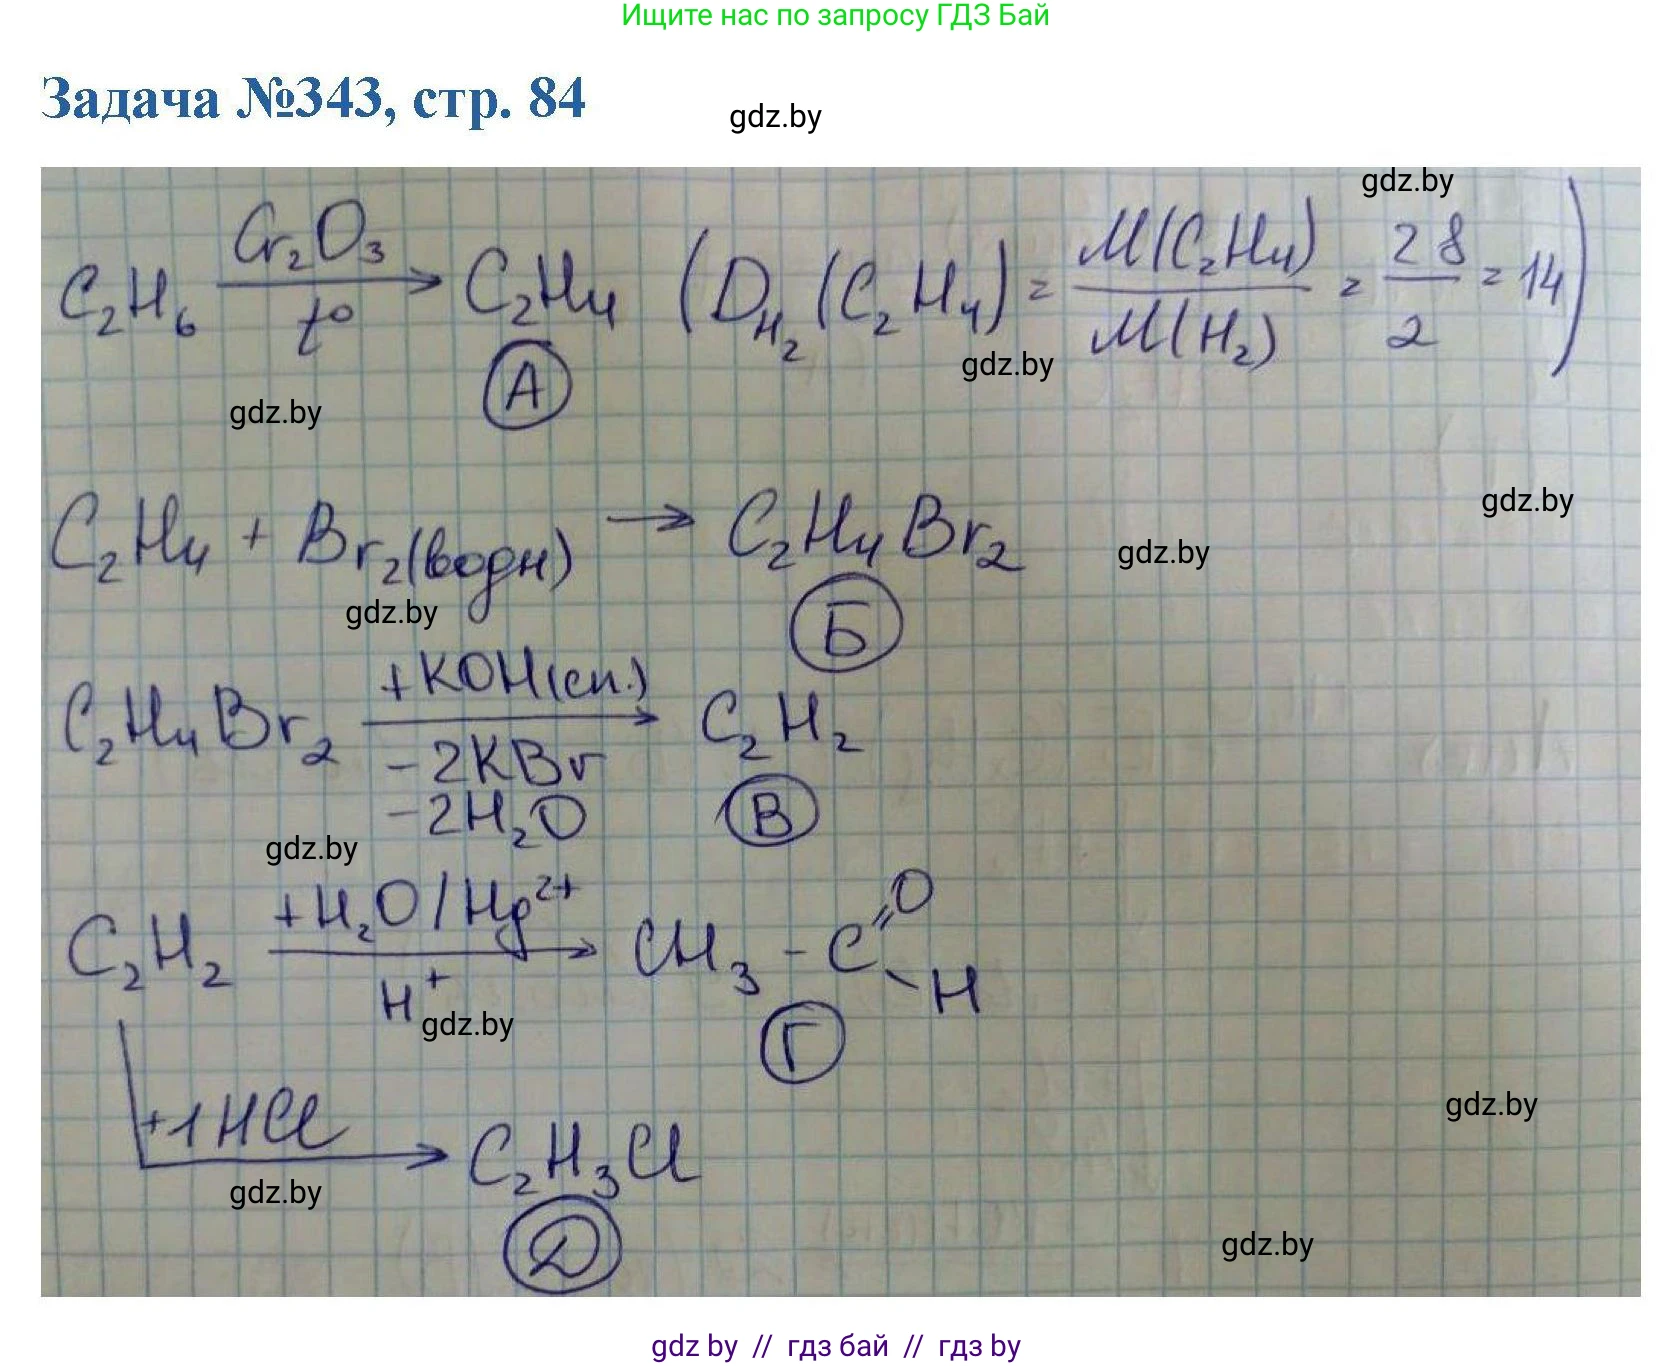 Ищите нас по запросу ГДЗ Бай
Задача №343, стр. 84
gdz.by
gdz.by
C₂H₆ Cr₂O₃ → t° C₂H₄ (D_H₂(C₂H₄) = M(C₂H₄) / M(H₂) = 28 / 2 = 14)
gdz.by
А
gdz.by
gdz.by
C₂H₄ + Br₂(водн) → C₂H₄Br₂
gdz.by
gdz.by
Б
C₂H₄Br₂ +KOH(сп.) → C₂H₂
-2KBr
-2H₂O
В
gdz.by
C₂H₂ +H₂O/Hg²⁺ → H⁺ CH₃-C=O -H
gdz.by
Г
gdz.by
+1HCl → C₂H₃Cl
gdz.by
Д
gdz.by
gdz by // гдз бай // гдз by